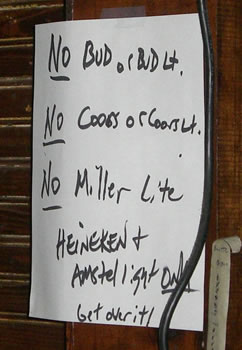 NO BUD or BUD Lt.
NO Coors or Coors Lt.
NO Miller Lite
HEINEKEN +
Amstel light ONLY
Get over it!